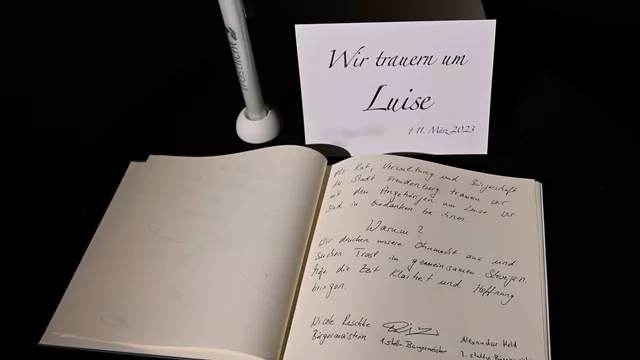 Trostlicht
Wir trauern um
Luise
† 11. März 2023
Als Rat, Verwaltung und Bürgerschaft
der Stadt Freudenberg trauern wir
mit den Angehörigen um Luise. Wir
sind in Gedanken bei ihnen
Warum?
Wir drücken unsere Ohnmacht aus und
suchen Trost in gemeinsamem Schweigen.
Möge die Zeit Klarheit und Hoffnung
bringen.
Nicole Reschke
Bürgermeisterin
1. stellv. Bürgermeister
Alexander Held